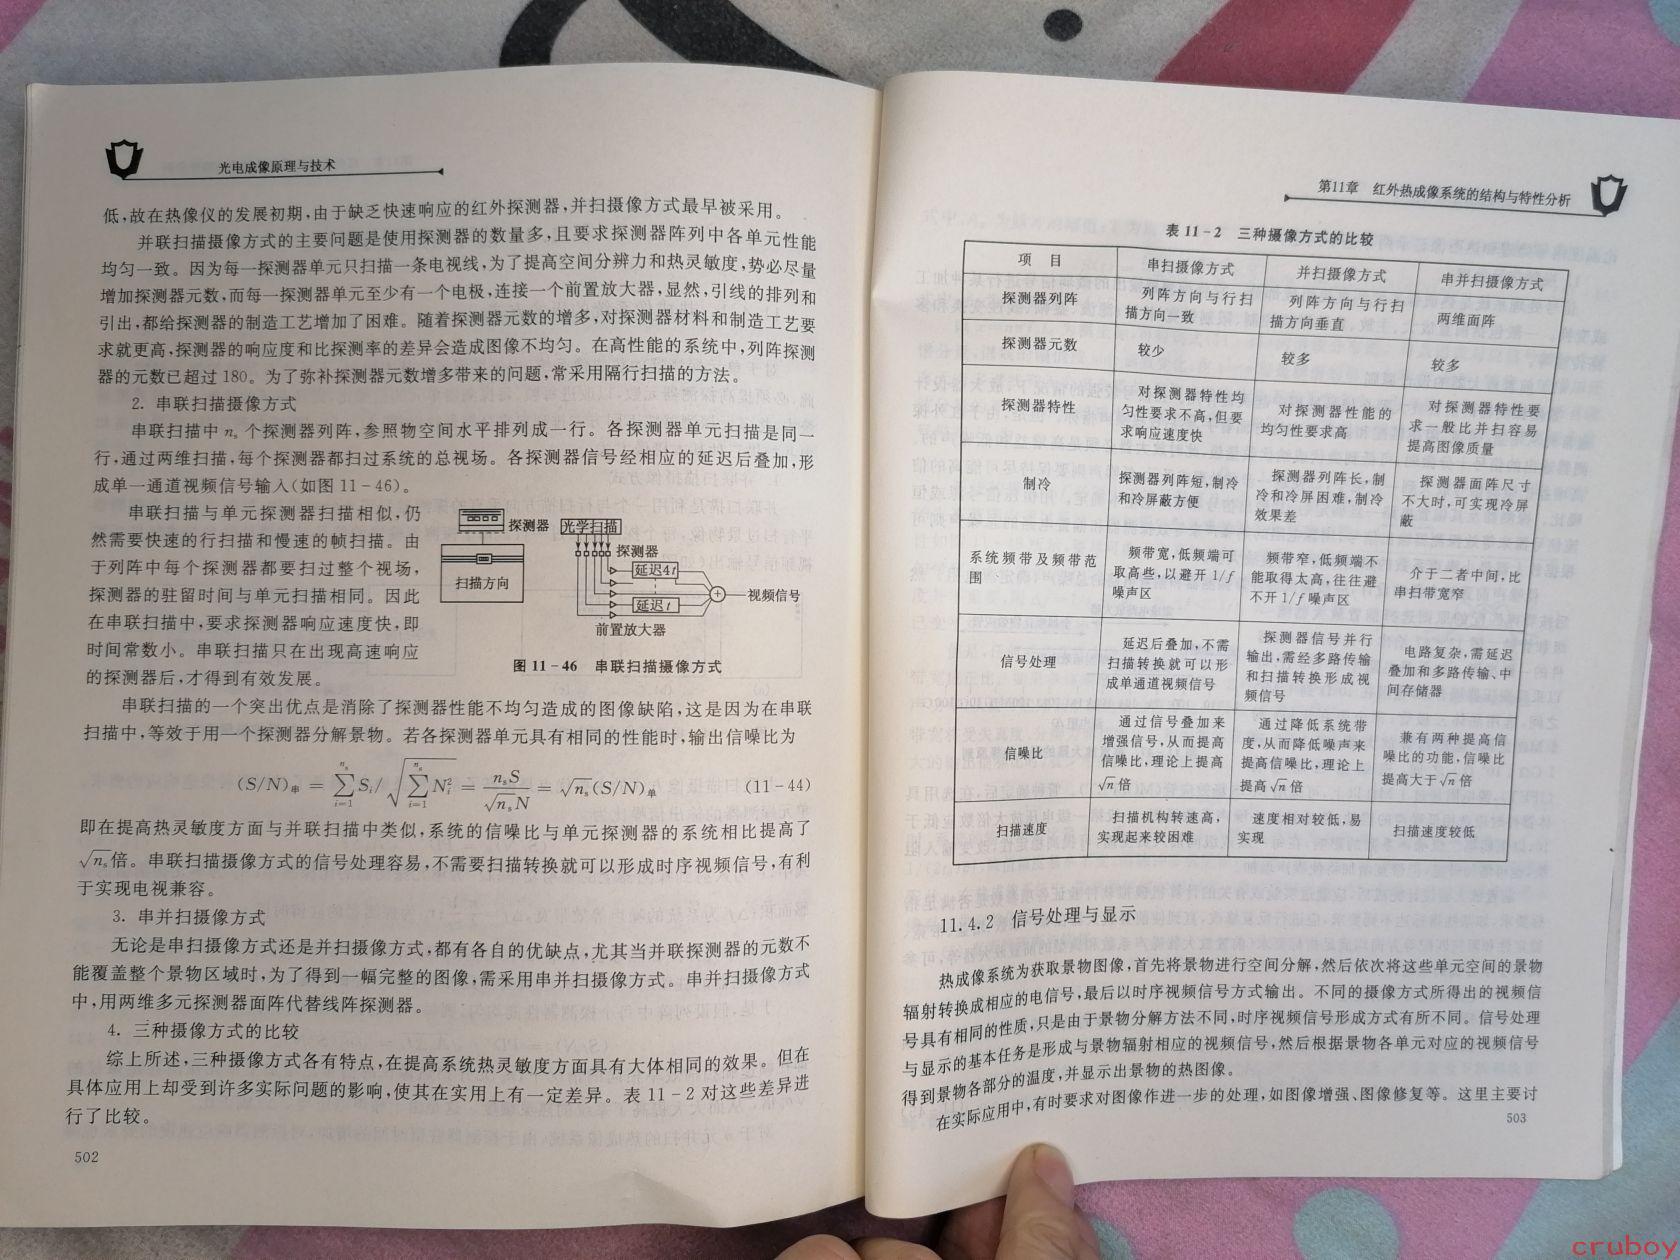 光电成像原理与技术
低,故在热像仪的发展初期,由于缺乏快速响应的红外探测器,并扫摄像方式最早被采用。
并联扫描摄像方式的主要问题是使用探测器的数量多,且要求探测器阵列中各单元性能
均匀一致。因为每一探测器单元只扫描一条电视线,为了提高空间分辨力和热灵敏度,势必尽量
增加探测器元数,而每一探测器单元至少有一个电极,连接一个前置放大器,显然,引线的排列和
引出,都给探测器的制造工艺增加了困难。随着探测器元数的增多,对探测器材料和制造工艺要
求就更高,探测器的响应度和比探测率的差异会造成图像不均匀。在高性能的系统中,列阵探测
器的元数已超过180。为了弥补探测器元数增多带来的问题,常采用隔行扫描的方法。
2. 串联扫描摄像方式
串联扫描中 nₛ 个探测器列阵,参照物空间水平排列成一行。各探测器单元扫描是同一
行,通过两维扫描,每个探测器都扫过系统的总视场。各探测器信号经相应的延迟后叠加,形
成单一通道视频信号输入(如图11-46)。
串联扫描与单元探测器扫描相似,仍
然需要快速的行扫描和慢速的帧扫描。由
于列阵中每个探测器都要扫过整个视场,
探测器的驻留时间与单元扫描相同。因此
在串联扫描中,要求探测器响应速度快,即
时间常数小。串联扫描只在出现高速响应
的探测器后,才得到有效发展。
探测器
光学扫描
探测器
延迟4t
扫描方向
视频信号
延迟t
前置放大器
图 11-46 串联扫描摄像方式
串联扫描的一个突出优点是消除了探测器性能不均匀造成的图像缺陷,这是因为在串联
扫描中,等效于用一个探测器分解景物。若各探测器单元具有相同的性能时,输出信噪比为
(S/N)串 = ∑_{i=1}^{nₛ} Sᵢ / √(∑_{i=1}^{nₛ} Nᵢ²) = nₛS / (√nₛ N) = √nₛ (S/N)单 (11-44)
即在提高热灵敏度方面与并联扫描中类似,系统的信噪比与单元探测器的系统相比提高了
√nₛ倍。串联扫描摄像方式的信号处理容易,不需要扫描转换就可以形成时序视频信号,有利
于实现电视兼容。
3. 串并扫摄像方式
无论是串扫摄像方式还是并扫摄像方式,都有各自的优缺点,尤其当并联探测器的元数不
能覆盖整个景物区域时,为了得到一幅完整的图像,需采用串并扫摄像方式。串并扫摄像方式
中,用两维多元探测器面阵代替线阵探测器。
4. 三种摄像方式的比较
综上所述,三种摄像方式各有特点,在提高系统热灵敏度方面具有大体相同的效果。但在
具体应用上却受到许多实际问题的影响,使其在实用上有一定差异。表 11-2 对这些差异进
行了比较。
502
第11章 红外热成像系统的结构与特性分析
表 11-2 三种摄像方式的比较
项 目 串扫摄像方式 并扫摄像方式 串并扫摄像方式
探测器列阵
列阵方向与行扫
描方向一致
列阵方向与行扫
描方向垂直
两维面阵
探测器元数 较少 较多 较多
探测器特性
对探测器特性均
匀性要求不高,但要
求响应速度快
对探测器性能的
均匀性要求高
对探测器特性要
求一般比并扫容易
提高图像质量
制冷
探测器列阵短,制冷
和冷屏蔽方便
探测器列阵长,制
冷和冷屏困难,制冷
效果差
探测器面阵尺寸
不大时,可实现冷屏
蔽
系统频带及频带范
围
频带宽,低频端可
取高些,以避开 1/f
噪声区
频带窄,低频端不
能取得太高,往往避
不开 1/f 噪声区
介于二者中间,比
串扫带宽窄
信号处理
延迟后叠加,不需
扫描转换就可以形
成单通道视频信号
探测器信号并行
输出,需经多路传输
和扫描转换形成视
频信号
电路复杂,需延迟
叠加和多路传输、中
间存储器
信噪比
通过信号叠加来
增强信号,从而提高
信噪比,理论上提高
√n 倍
通过降低系统带
度,从而降低噪声来
提高信噪比,理论上
提高 √n 倍
兼有两种提高信
噪比的功能,信噪比
提高大于 √n 倍
扫描速度
扫描机构转速高,
实现起来较困难
速度相对较低,易
实现
扫描速度较低
11.4.2 信号处理与显示
热成像系统为获取景物图像,首先将景物进行空间分解,然后依次将这些单元空间的景物
辐射转换成相应的电信号,最后以时序视频信号方式输出。不同的摄像方式所得出的视频信
号具有相同的性质,只是由于景物分解方法不同,时序视频信号形成方式有所不同。信号处理
与显示的基本任务是形成与景物辐射相应的视频信号,然后根据景物各单元对应的视频信号
得到景物各部分的温度,并显示出景物的热图像。
在实际应用中,有时要求对图像作进一步的处理,如图像增强、图像修复等。这里主要讨
503
cruboy